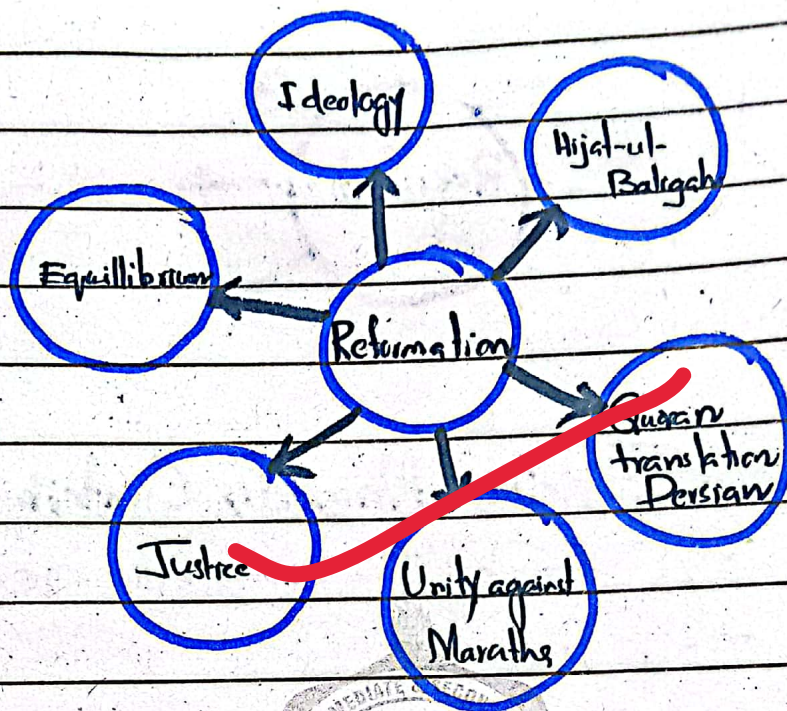 Ideology
Hijat-ul-
Baligah
Equillibrium
Reformation
Quran
translation
Persian
Justice
Unity against
Maratha